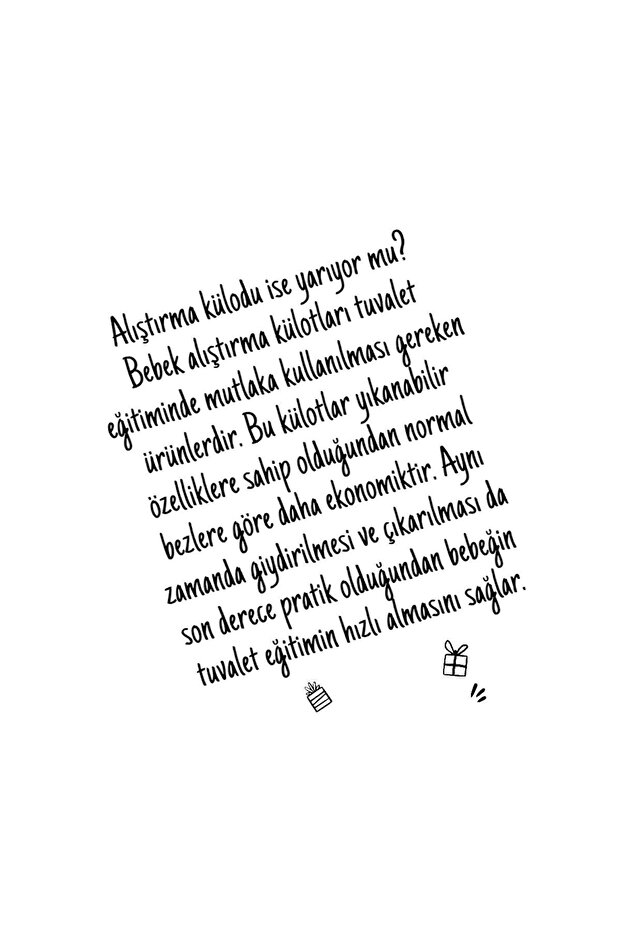 Alıştırma külodu ise yarıyor mu?
Bebek alıştırma külotları tuvalet
eğitiminde mutlaka kullanılması gereken
ürünlerdir. Bu külotlar yıkanabilir
özelliklere sahip olduğundan normal
bezlere göre daha ekonomiktir. Aynı
zamanda giydirilmesi ve çıkarılması da
son derece pratik olduğundan bebeğin
tuvalet eğitimin hızlı almasını sağlar.